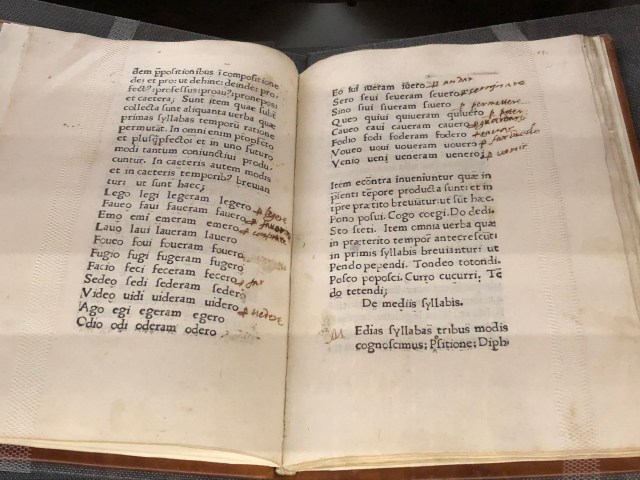 dem ꝓpositionibus ĩ compositione
de: et pro: ut dehinc: deinde: pro/
fect?: professus: proau?: pronepos:
et caetera; Sunt item quae sub
collecta sunt aliquanta uerba quae
primas syllabas temporũ ratione
permutãt. In omni enim
et plusq̃fecto: et in uno futuro
modi tantum coniunctiui produ
cuntur. In caeteris autem modis
et in caeteris temporib? breuian
tur: ut sunt haec;
Lego legi legeram legero
Faueo faui faueram fauero
Emo emi emeram emero
Lauo laui laueram lauero
Foueo foui foueram fouero
Fugio fugi fugeram fugero
Facio feci feceram fecero
Sedeo sedi sederam sedero
Video uidi uideram uidero
Ago egi egeram egero
Odio odi oderam odero
Eo iui iueram iuero andar
Sero seui seueram seuero
Sino siui siueram siuero permettere
Queo quiui quiueram quiuero
Caueo caui caueram cauero
Fodio fodi foderam fodero
Voueo uoui uoueram uouero
Venio ueni ueneram uenero uenir
Item ecõtra inueniuntur quae in
pienti tẽpore producta sunt: et in
tpre praetito breuiãtur: ut sũt haec.
Pono posui. Cogo coegi. Do dedi.
Sto steti. Item omnia uerba quae
in praeterito tempore antecrescũt:
in primis syllabis breuianturi ut
Pendo pependi. Tondeo totondi.
Posco poposci. Curro cucurri. Tẽ
do tetendi;
De mediis syllabis.
M Edias syllabas tribus modis
cognoscimus; Positione; Diph